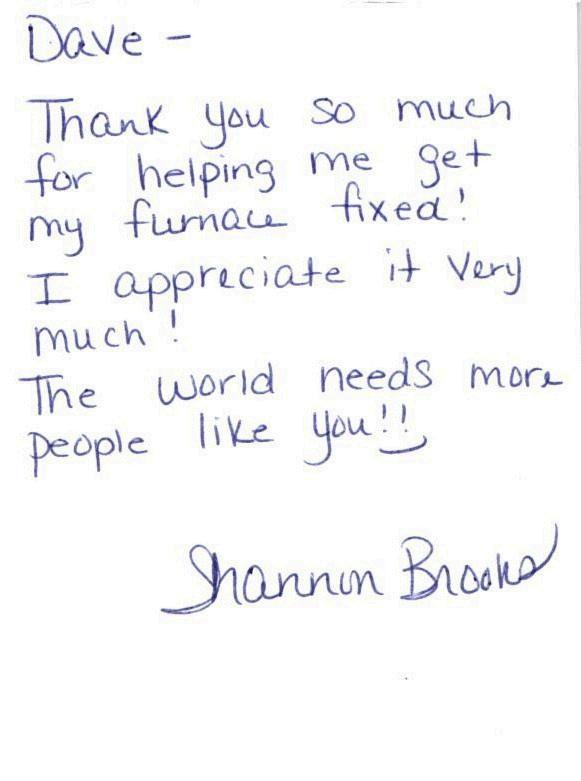 Dave -
Thank you so much
for helping me get
my furnace fixed!
I appreciate it very
much!
The world needs more
people like you!!
Shannon Brooks